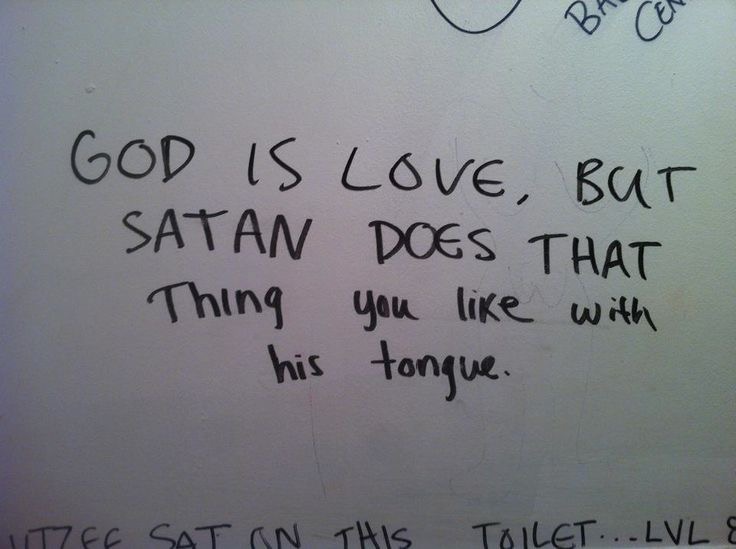 GOD IS LOVE, BUT
SATAN DOES THAT
Thing you like with
his tongue.
SAT ON THIS TOILET...LVL 8